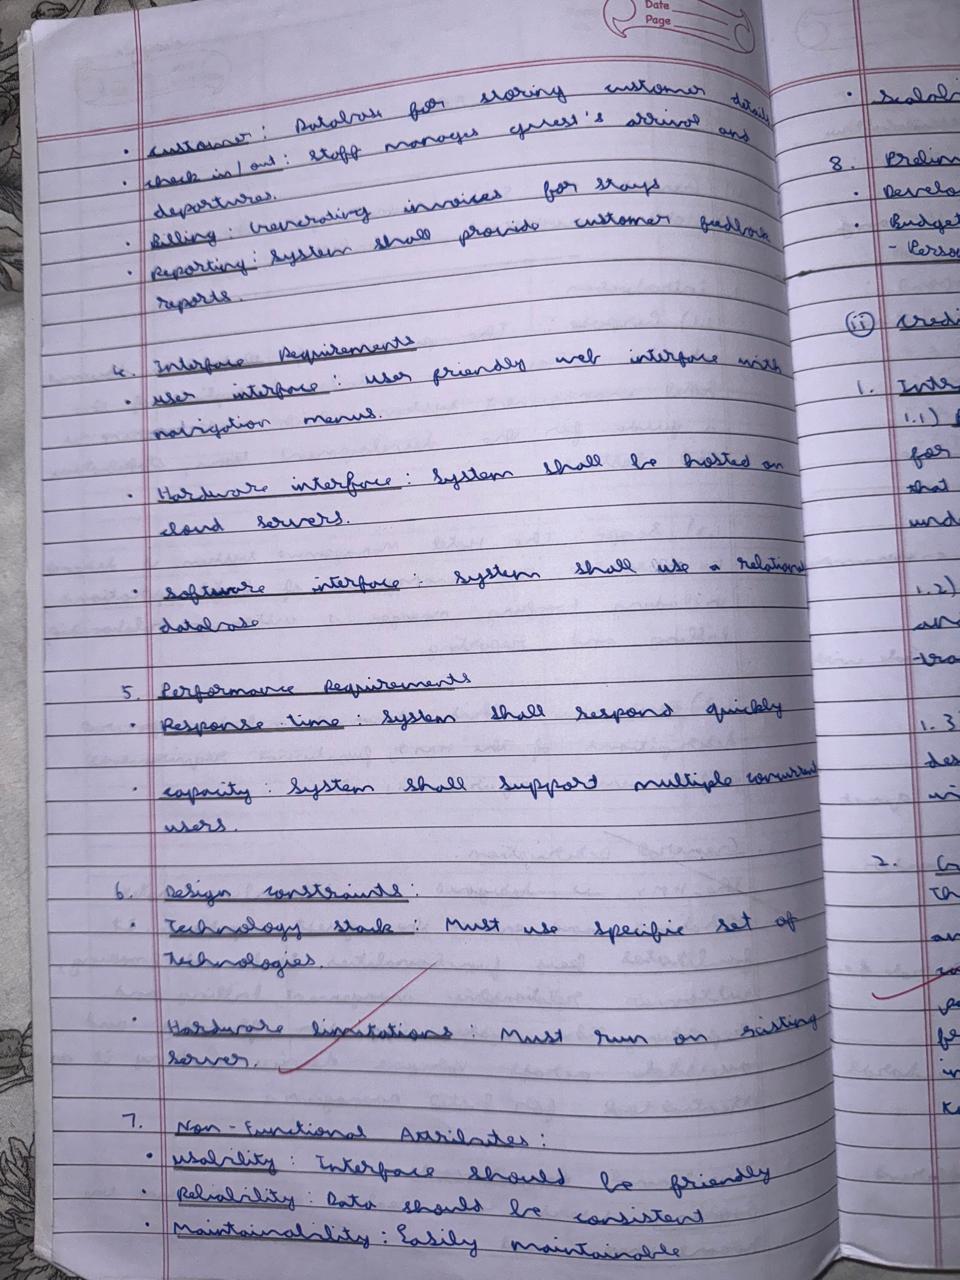 Date
Page
• customer: Database for storing customer details
• check in/out: Staff manages guest's arrival and
departures.
• Billing: Generating invoices for stays
• Reporting: System shall provide customer feedback
reports.
4. Interface Requirements
• user interface: user friendly web interface with
navigation menus.
• Hardware interface: System shall be hosted on
cloud servers.
• software interface: System shall use a relational
database
5. Performance Requirements
• Response time: System shall respond quickly
• capacity: System shall support multiple concurrent
users.
6. Design constraints:
• Technology stack: Must use specific set of
Technologies.
• Hardware limitations: Must run on existing
server.
7. Non-Functional Attributes:
• usability: Interface should be friendly
• Reliability: Data should be consistent
• Maintainability: Easily maintainable
8.
•
• Budget
-
(ii)
1.
1.1)
for
that
1.2)
1.3
2.